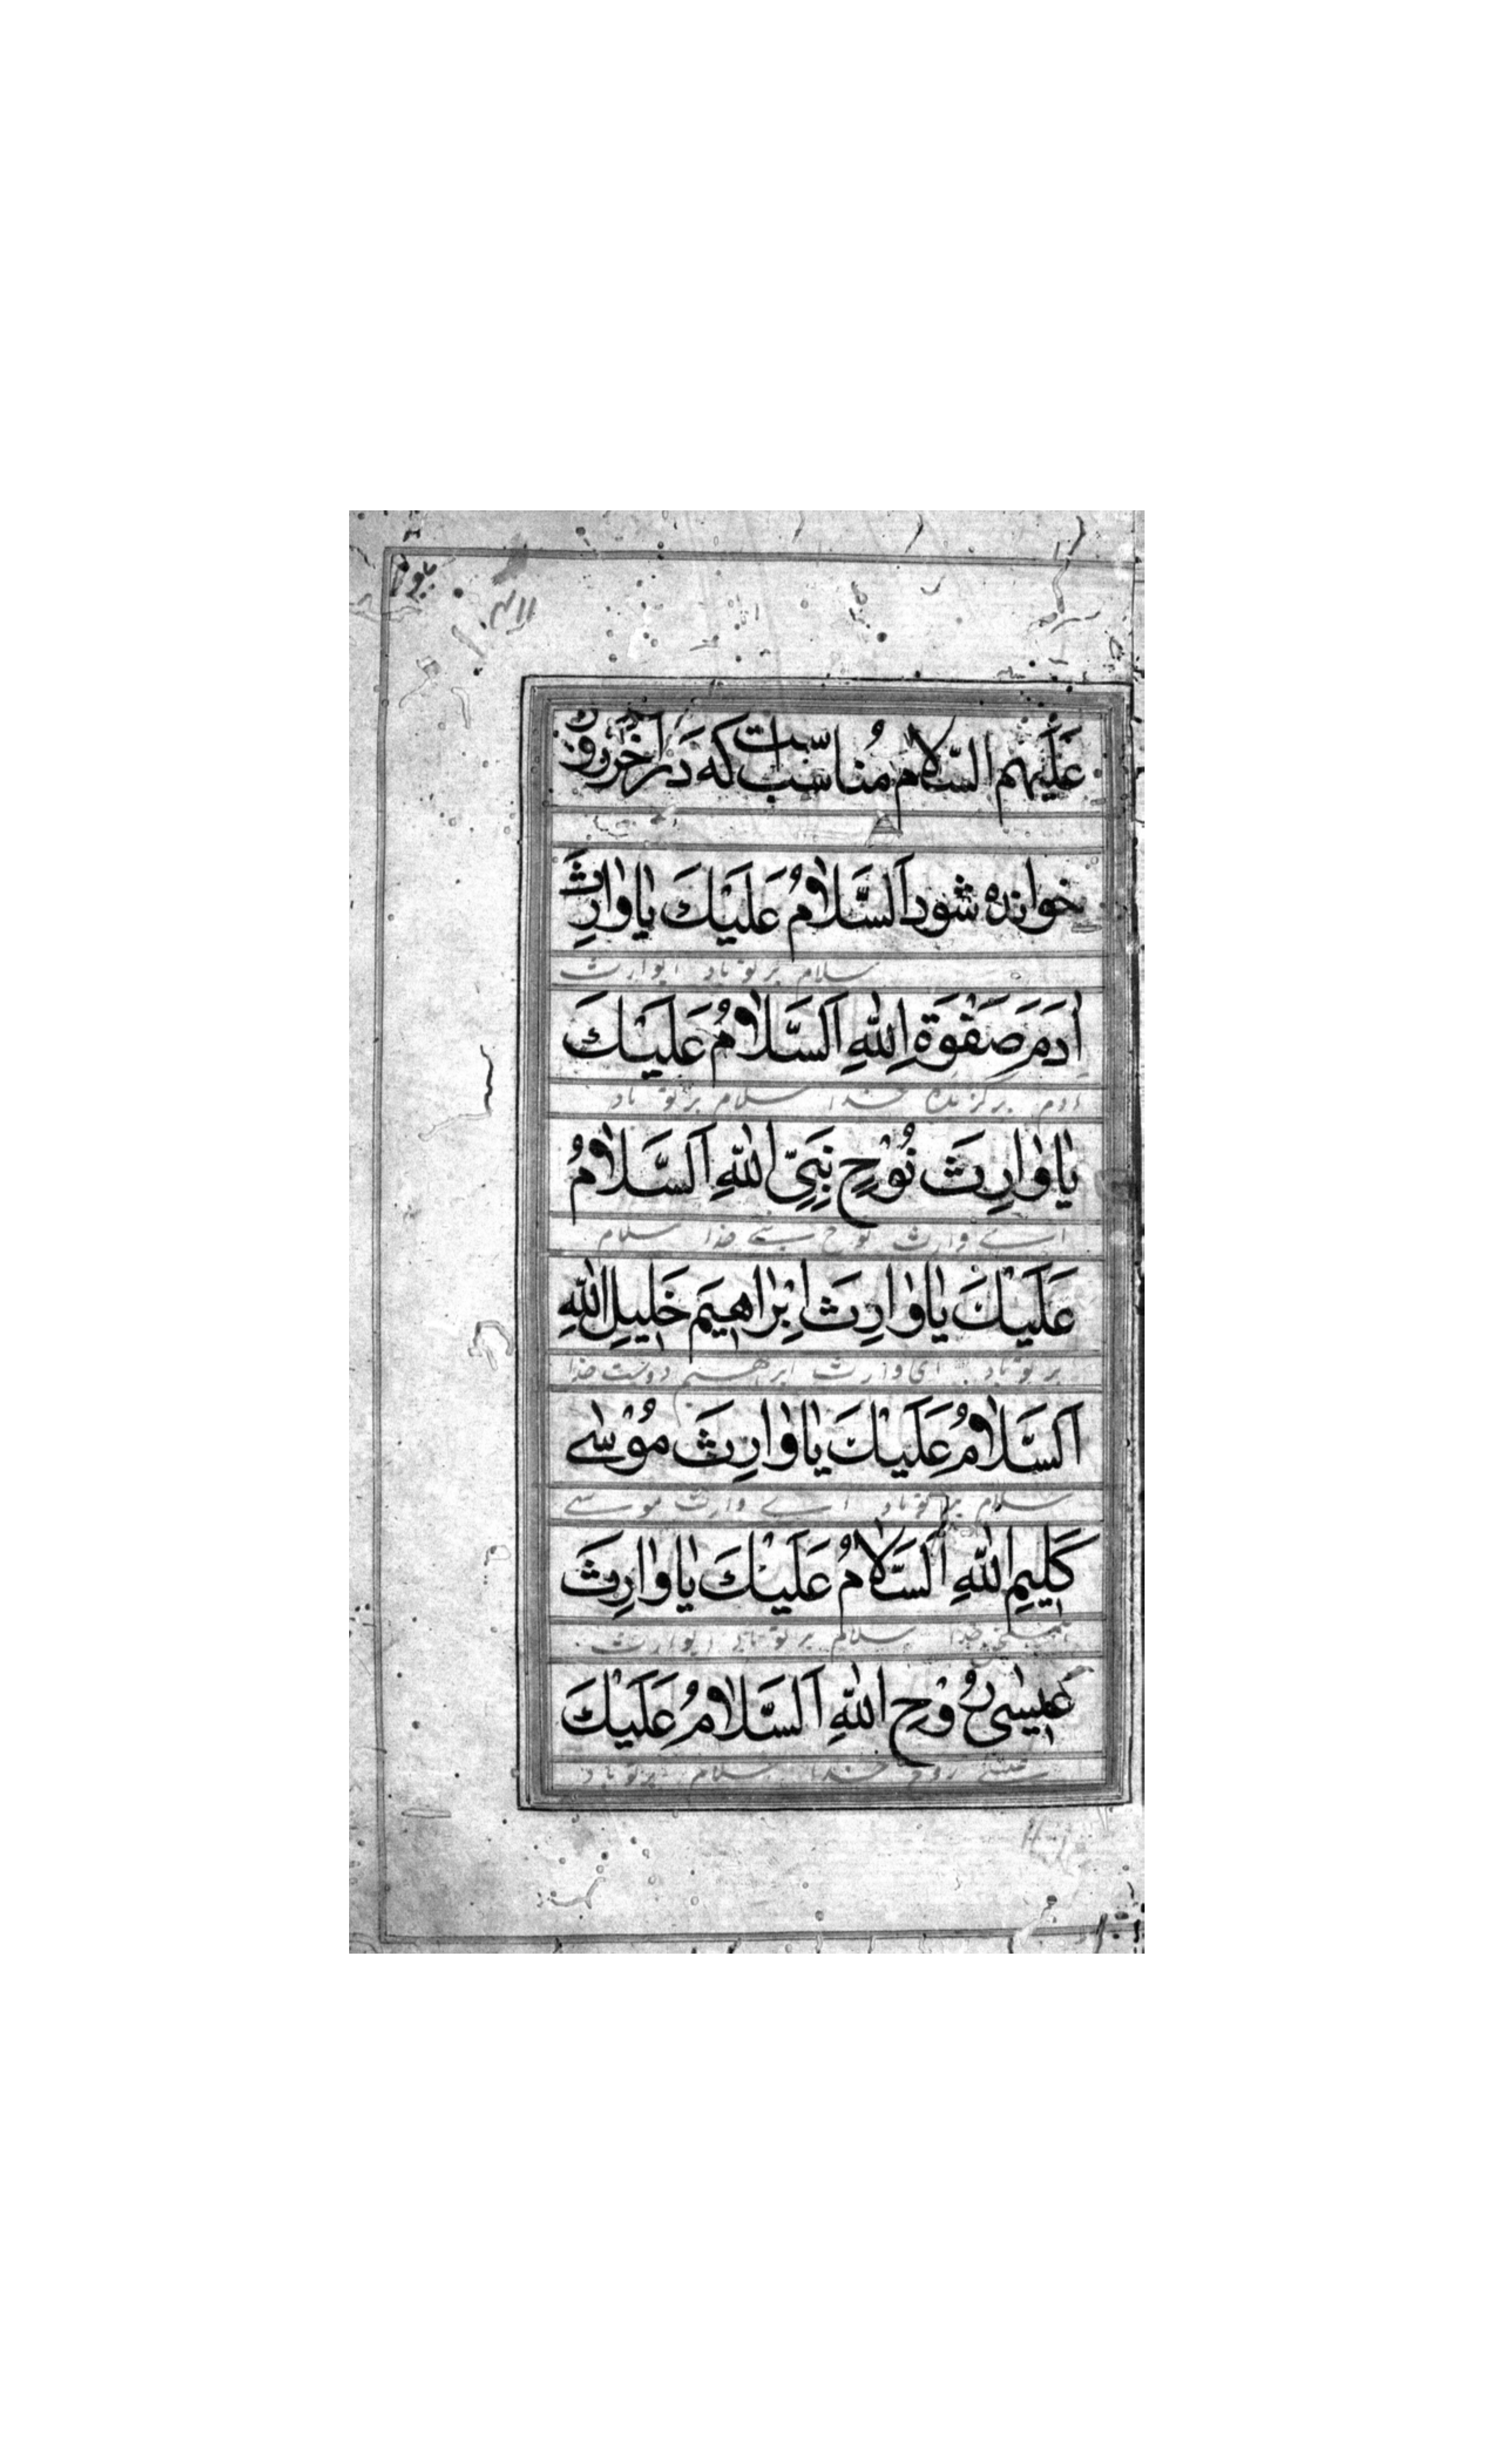 عَلَيْهِم السّلام مُناسب است که دَر آخر روز
خوانده شود اَلسَّلامُ عَلَيْكَ يٰا وٰارِثَ
سلام بر تو باد ایوارث
اٰدَمَ صَفْوَةِ اللّٰهِ اَلسَّلٰامُ عَلَيْكَ
آدم برگزیده خدا سلام بر تو باد
يٰا وٰارِثَ نُوْحٍ نَبِيِّ اللّٰهِ اَلسَّلٰامُ
اے وارث نوح نبے خدا سلام
عَلَيْكَ يٰا وٰارِثَ اِبْرٰاهِيْمَ خَلِيْلِ اللّٰهِ
بر تو باد ای وارث ابرهیم دوست خدا
اَلسَّلٰامُ عَلَيْكَ يٰا وٰارِثَ مُوْسٰے
سلام بر تو باد اے وارث موسے
كَلِيْمِ اللّٰهِ اَلسَّلٰامُ عَلَيْكَ يٰا وٰارِثَ
خدا سلام بر تو ایوارث
عِيْسٰى رُوْحِ اللّٰهِ اَلسَّلٰامُ عَلَيْكَ
عیسے روح خدا سلام بر تو باد